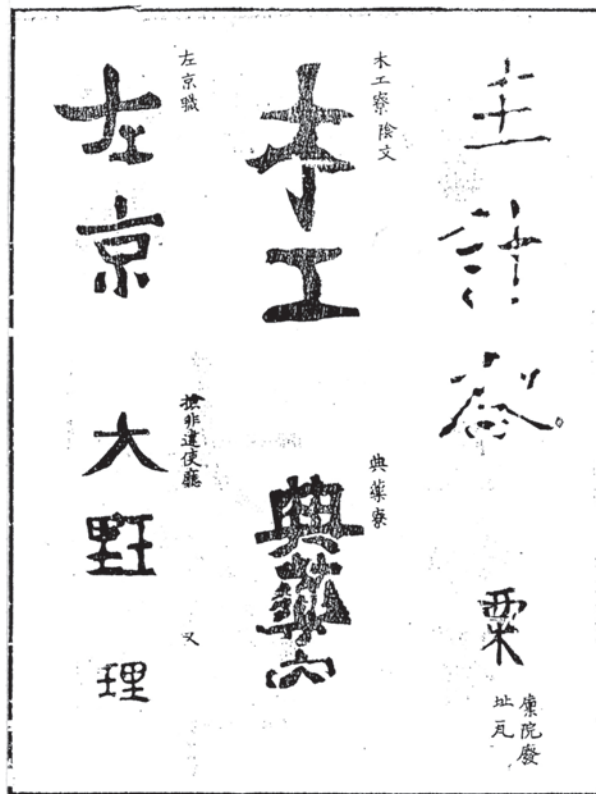 主計
粟
廩院廢
址瓦
木工寮陰文
木工
典藥寮
典藥
左京職
左京
撿非違使廳
大理
又
理